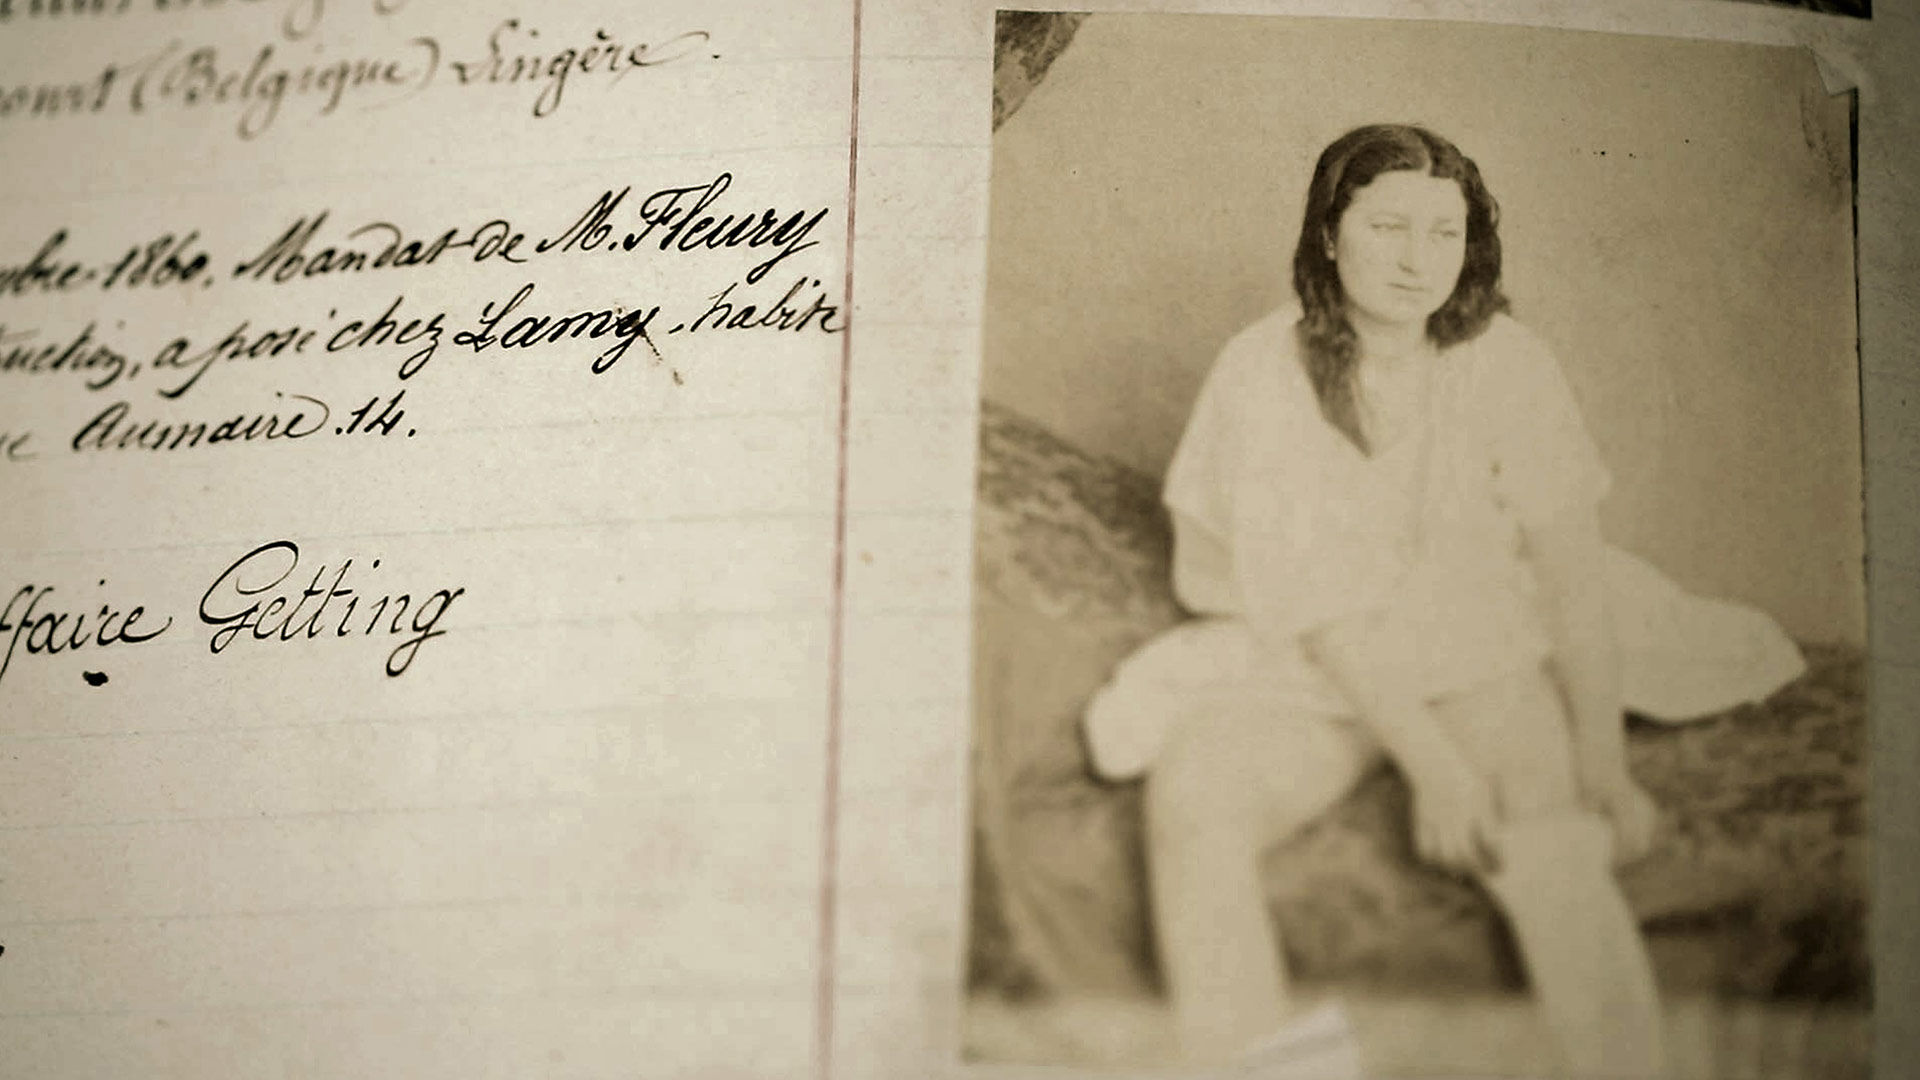 (Belgique) Lingère.
mbre 1860. Mandat de M. Fleury
uction, a posé chez Lamy, habite
ue Aumaire .14.
ffaire Getting